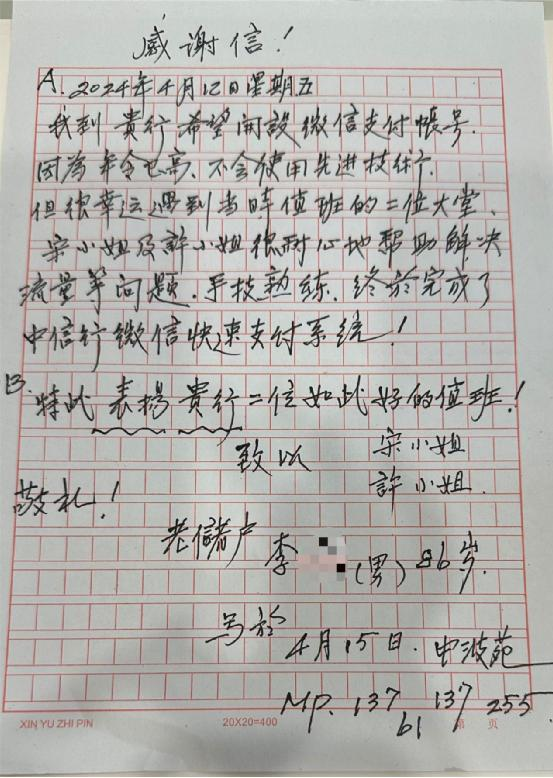 感谢信!
A. 2024年4月12日星期五
我到 貴行 希望開設微信支付帳号.
因為年令已高、不会使用先进技術.
但很幸运遇到当時值班的二位大堂、
宋小姐及許小姐很耐心地帮助解决
流量等问题.手技熟练.终於完成了
中信行微信快速支付系统!
B. 特此 表揚 貴行二位如此好的值班!
致以 宋小姐
許小姐.
敬礼!
老儲户 李 (男) 86岁.
写於
4月15日.
MP. 137 137 255
61
XIN YU ZHI PIN 20X20=400 第 页